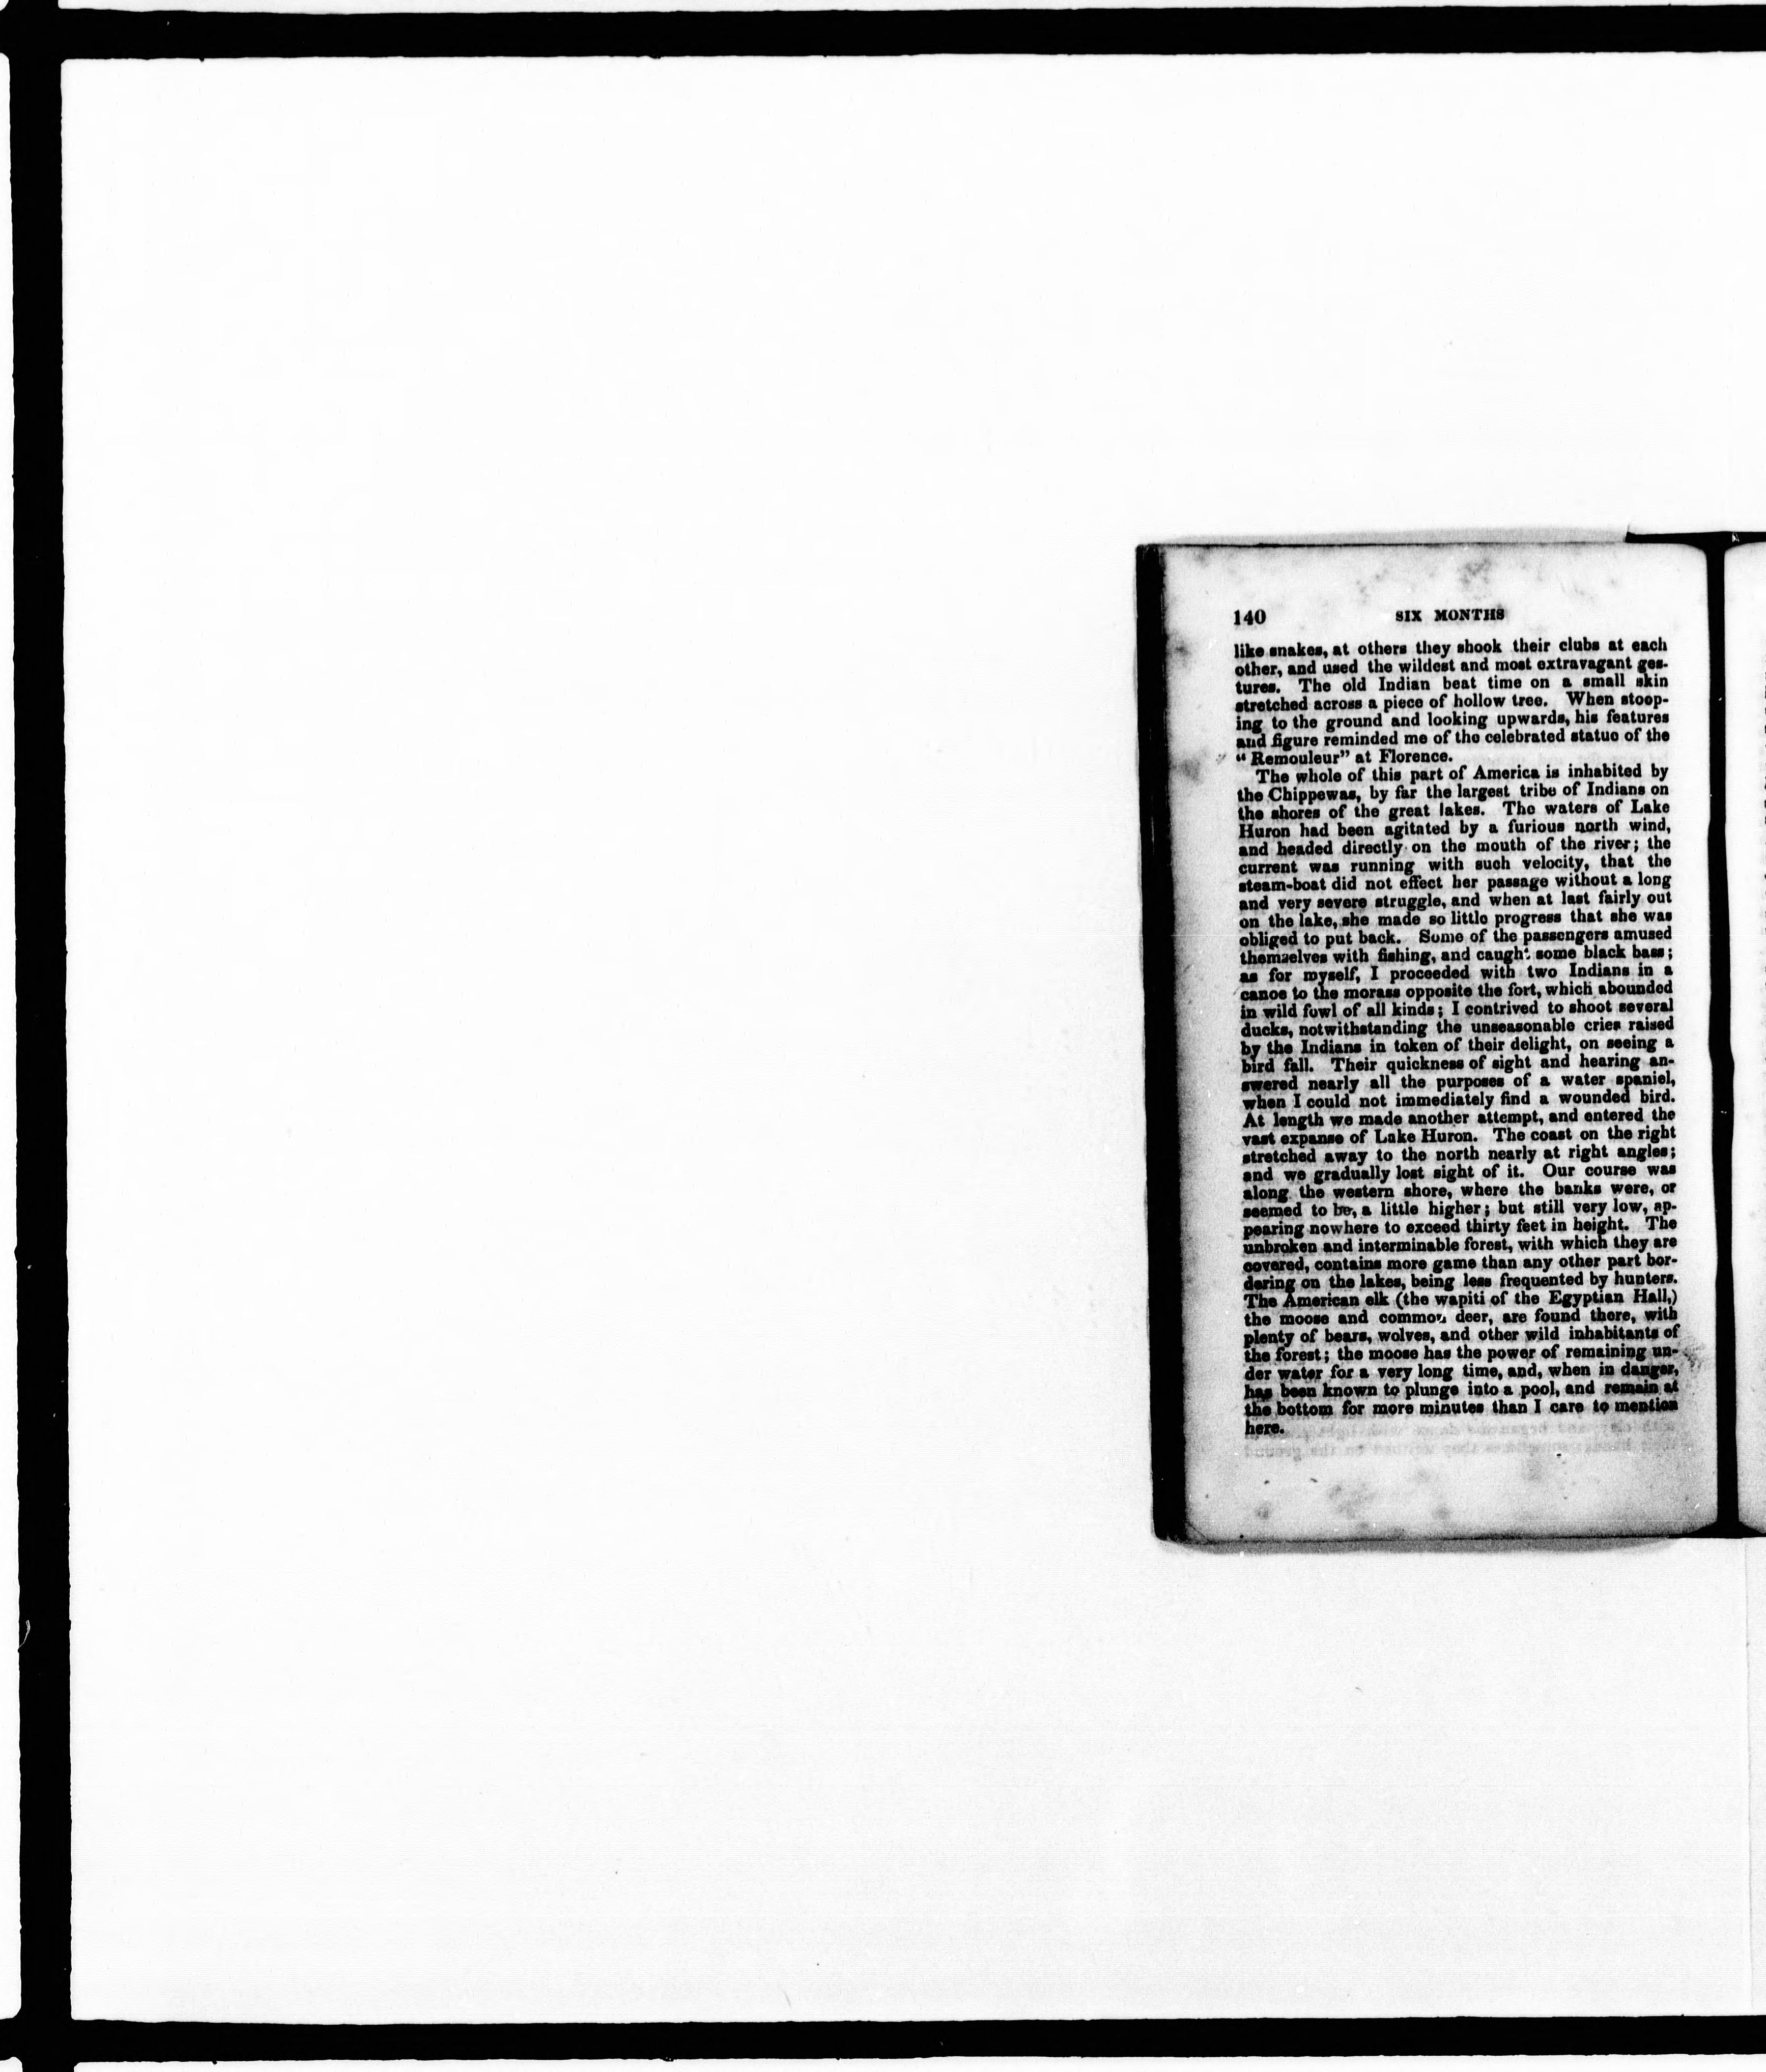 140 SIX MONTHS
like snakes, at others they shook their clubs at each
other, and used the wildest and most extravagant ges-
tures. The old Indian beat time on a small skin
stretched across a piece of hollow tree. When stoop-
ing to the ground and looking upwards, his features
and figure reminded me of the celebrated statue of the
“Remouleur” at Florence.
The whole of this part of America is inhabited by
the Chippewas, by far the largest tribe of Indians on
the shores of the great lakes. The waters of Lake
Huron had been agitated by a furious north wind,
and headed directly on the mouth of the river; the
current was running with such velocity, that the
steam-boat did not effect her passage without a long
and very severe struggle, and when at last fairly out
on the lake, she made so little progress that she was
obliged to put back. Some of the passengers amused
themselves with fishing, and caught some black bass;
as for myself, I proceeded with two Indians in a
canoe to the morass opposite the fort, which abounded
in wild fowl of all kinds; I contrived to shoot several
ducks, notwithstanding the unseasonable cries raised
by the Indians in token of their delight, on seeing a
bird fall. Their quickness of sight and hearing an-
swered nearly all the purposes of a water spaniel,
when I could not immediately find a wounded bird.
At length we made another attempt, and entered the
vast expanse of Lake Huron. The coast on the right
stretched away to the north nearly at right angles;
and we gradually lost sight of it. Our course was
along the western shore, where the banks were, or
seemed to be, a little higher; but still very low, ap-
pearing nowhere to exceed thirty feet in height. The
unbroken and interminable forest, with which they are
covered, contains more game than any other part bor-
dering on the lakes, being less frequented by hunters.
The American elk (the wapiti of the Egyptian Hall,)
the moose and common deer, are found there, with
plenty of bears, wolves, and other wild inhabitants of
the forest; the moose has the power of remaining un-
der water for a very long time, and, when in danger,
has been known to plunge into a pool, and remain at
the bottom for more minutes than I care to mention
here.